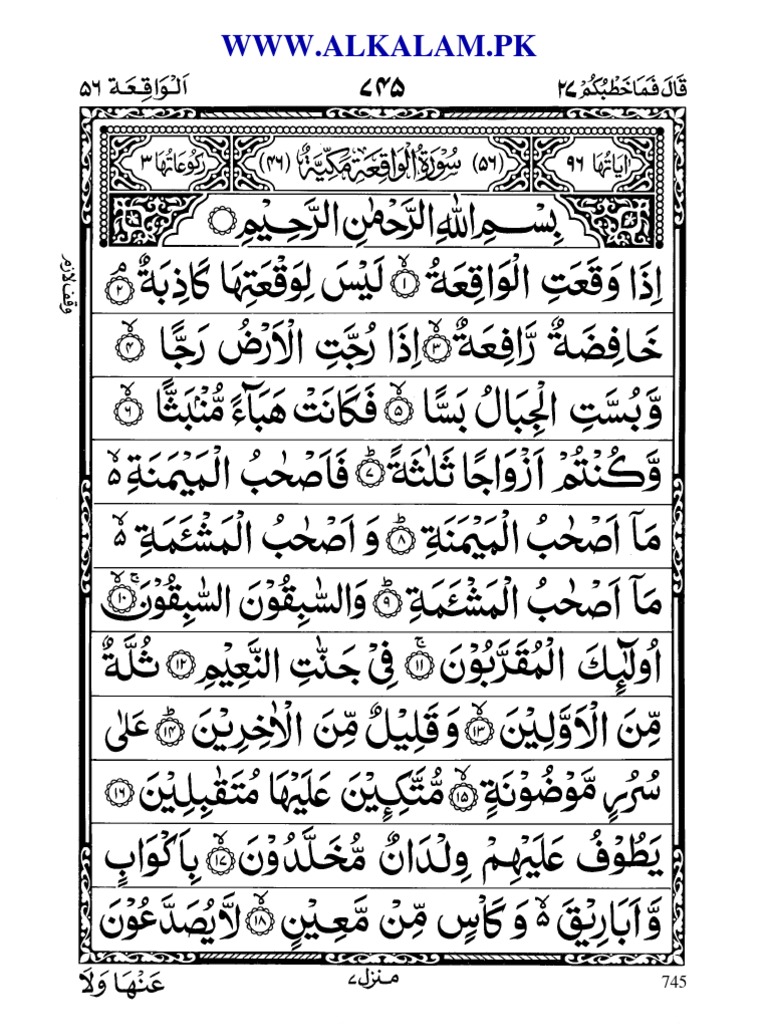 WWW.ALKALAM.PK
قَالَ فَمَا خَطْبُكُمْ ۲۷ ۷۴۵ اَلْوَاقِعَة ۵۶
اٰیَاتُهَا ۹۶ (۵۶) سُوْرَةُ الْوَاقِعَةِ مَكِّیَّةٌ (۴۶) رُكُوْعَاتُهَا ۳
بِسْمِ اللّٰهِ الرَّحْمٰنِ الرَّحِیْمِ
اِذَا وَقَعَتِ الْوَاقِعَةُ ۙ۱ لَیْسَ لِوَقْعَتِهَا كَاذِبَةٌ ۘ۲
وقف لازم
خَافِضَةٌ رَّافِعَةٌ ۙ۳ اِذَا رُجَّتِ الْاَرْضُ رَجًّا ۙ۴
وَّ بُسَّتِ الْجِبَالُ بَسًّا ۙ۵ فَكَانَتْ هَبَآءً مُّنْۢبَثًّا ۙ۶
وَّ كُنْتُمْ اَزْوَاجًا ثَلٰثَةً ؕ۷ فَاَصْحٰبُ الْمَیْمَنَةِ ۙ۬
مَاۤ اَصْحٰبُ الْمَیْمَنَةِ ؕ۸ وَ اَصْحٰبُ الْمَشْـَٔمَةِ ۙ۬
مَاۤ اَصْحٰبُ الْمَشْـَٔمَةِ ؕ۹ وَ السّٰبِقُوْنَ السّٰبِقُوْنَ ۚۙ۱۰
اُولٰٓىِٕكَ الْمُقَرَّبُوْنَ ۚ۱۱ فِیْ جَنّٰتِ النَّعِیْمِ ۱۲ ثُلَّةٌ
مِّنَ الْاَوَّلِیْنَ ۙ۱۳ وَ قَلِیْلٌ مِّنَ الْاٰخِرِیْنَ ؕ۱۴ عَلٰی
سُرُرٍ مَّوْضُوْنَةٍ ۙ۱۵ مُّتَّكِـِٕیْنَ عَلَیْهَا مُتَقٰبِلِیْنَ ۱۶
یَطُوْفُ عَلَیْهِمْ وِلْدَانٌ مُّخَلَّدُوْنَ ۙ۱۷ بِاَكْوَابٍ
وَّ اَبَارِیْقَ ۙ۬ وَ كَاْسٍ مِّنْ مَّعِیْنٍ ۙ۱۸ لَّا یُصَدَّعُوْنَ
عَنْهَا وَلَا منزل ۷ 745